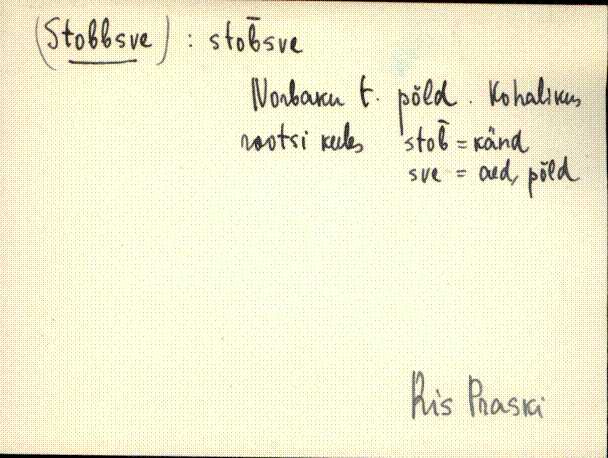 (Stobbsve) : stob̄sve
Norbaku t. põld. Kohalikus
rootsi keeles stob̄ = känd
sve = aed, põld
Ris Praski